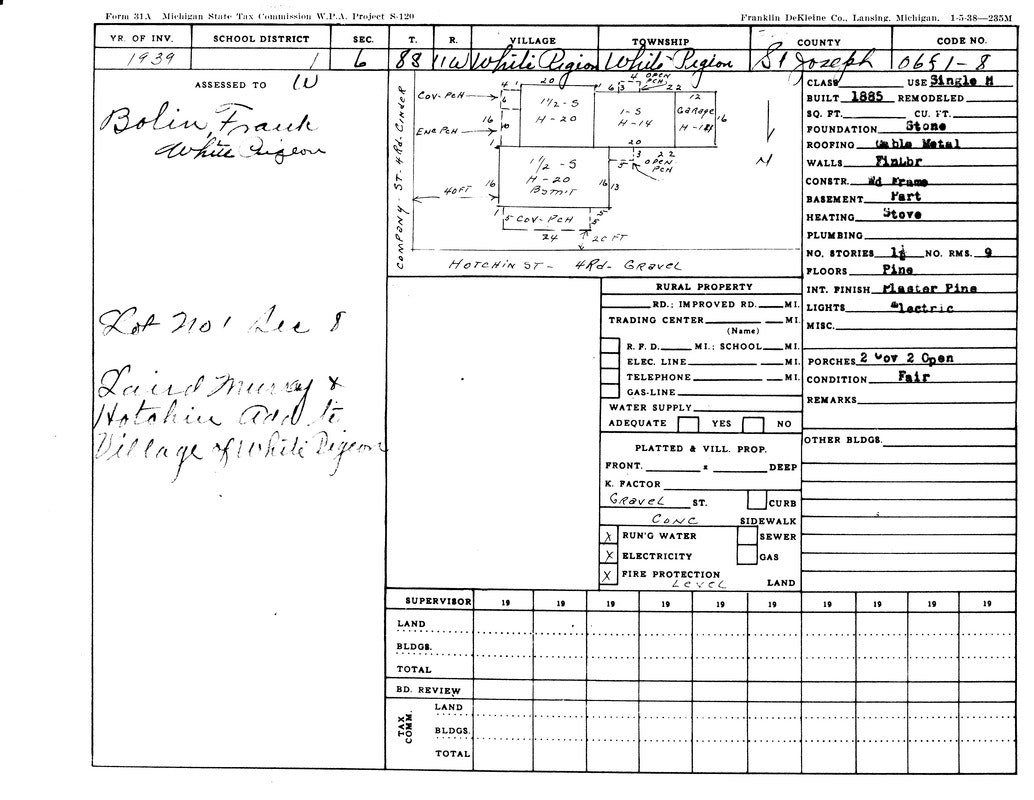 Form 31A Michigan State Tax Commission W.P.A. Project S-120
Franklin DeKleine Co., Lansing, Michigan. 1-5-38—235M
YR. OF INV. SCHOOL DISTRICT SEC. T. R. VILLAGE TOWNSHIP COUNTY CODE NO.
1939 1 6 8S 11W White Pigeon White Pigeon St Joseph 0651-8
ASSESSED TO
Bolin, Frank
White Pigeon
Lot No 1 Sec 8
Laird Murray &
Hotchin Add to
Village of White Pigeon
COMPANY-ST-4Rd-CINDER
COV-PCH
ENC PCH
40FT
4 20
6
16
10
1
1½-S
H-20
4 OPEN
PCH
6 3 22
1-S
H-14
12
Garage
16
20
3 22
5 OPEN
PCH
1½-S
H-20
Bsmt
16
16 13
1 5 COV-PCH 5
5
24 20FT
N
HOTCHIN ST- 4Rd- GRAVEL
CLASS USE Single H
BUILT 1885 REMODELED
SQ. FT. CU. FT.
FOUNDATION Stone
ROOFING Gable Metal
WALLS FinLbr
CONSTR. Wd Frame
BASEMENT Part
HEATING Stove
PLUMBING
NO. STORIES 1½ NO. RMS. 9
FLOORS Pine
INT. FINISH Plaster Pine
LIGHTS Electric
MISC.
PORCHES 2 Cov 2 Open
CONDITION Fair
REMARKS
OTHER BLDGS.
RURAL PROPERTY
RD.; IMPROVED RD. MI.
TRADING CENTER MI.
(Name)
R. F. D. MI.; SCHOOL MI.
ELEC. LINE MI.
TELEPHONE MI.
GAS-LINE
WATER SUPPLY
ADEQUATE YES NO
PLATTED & VILL. PROP.
FRONT. x DEEP
K. FACTOR
GRAVEL ST. CURB
CONC SIDEWALK
X RUN'G WATER SEWER
X ELECTRICITY GAS
X FIRE PROTECTION
LEVEL LAND
SUPERVISOR 19 19 19 19 19 19 19 19 19
LAND
BLDGS.
TOTAL
BD. REVIEW
TAX COMM.
LAND
BLDGS.
TOTAL